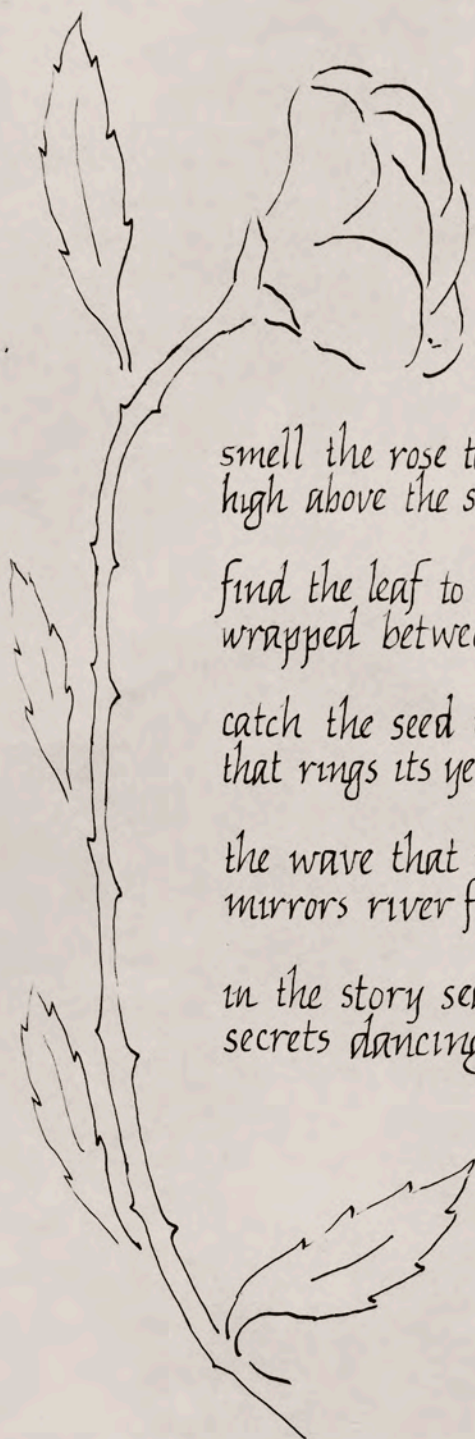 smell the rose
high above the
find the leaf to
wrapped
catch the seed
that rings its
the wave that
mirrors river
in the story
secrets dancing